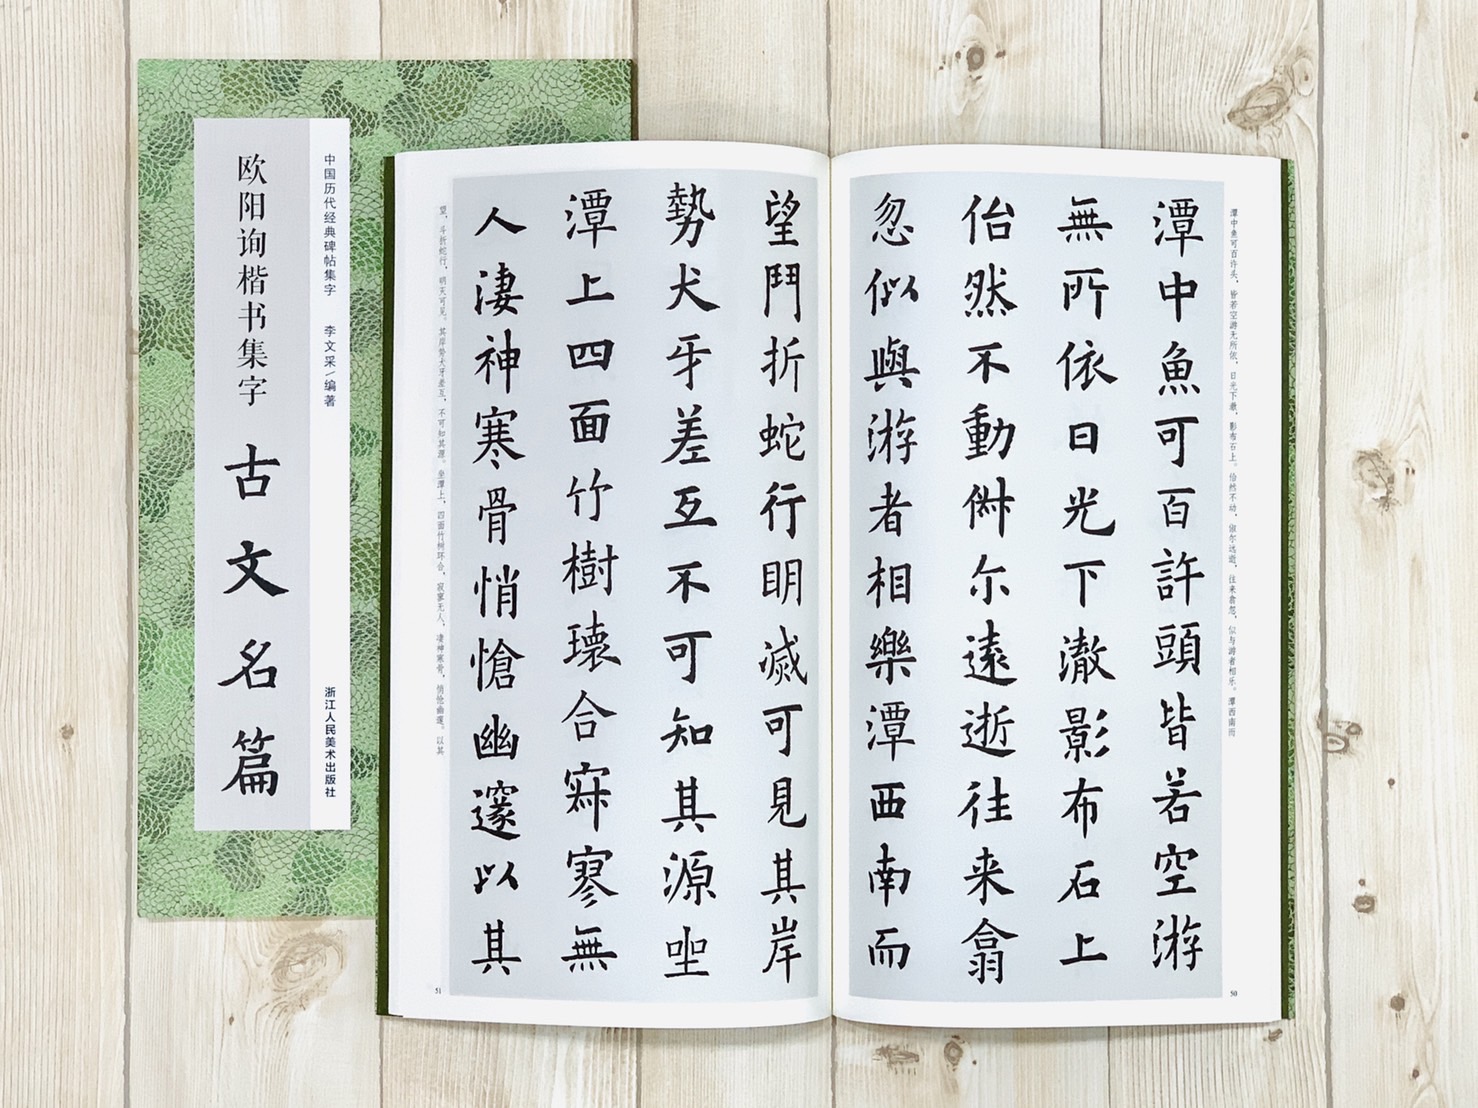 欧阳询楷书集字 古文名篇
中国历代经典碑帖集字 李文采/编著 浙江人民美术出版社
潭中鱼可百许头，皆若空游无所依，日光下澈，影布石上。佁然不动，俶尔远逝，往来翕忽，似与游者相乐。潭西南而
潭中魚可百許頭皆若空游
無所依日光下澈影布石上
佁然不動俶尔遠逝往来翕
忽似與游者相樂潭西南而
50
望鬥折蛇行明滅可見其岸
勢犬牙差互不可知其源坐
潭上四面竹樹環合寂寥無
人淒神寒骨悄愴幽邃以其
望，斗折蛇行，明灭可见。其岸势犬牙差互，不可知其源。坐潭上，四面竹树环合，寂寥无人，凄神寒骨，悄怆幽邃。以其
51